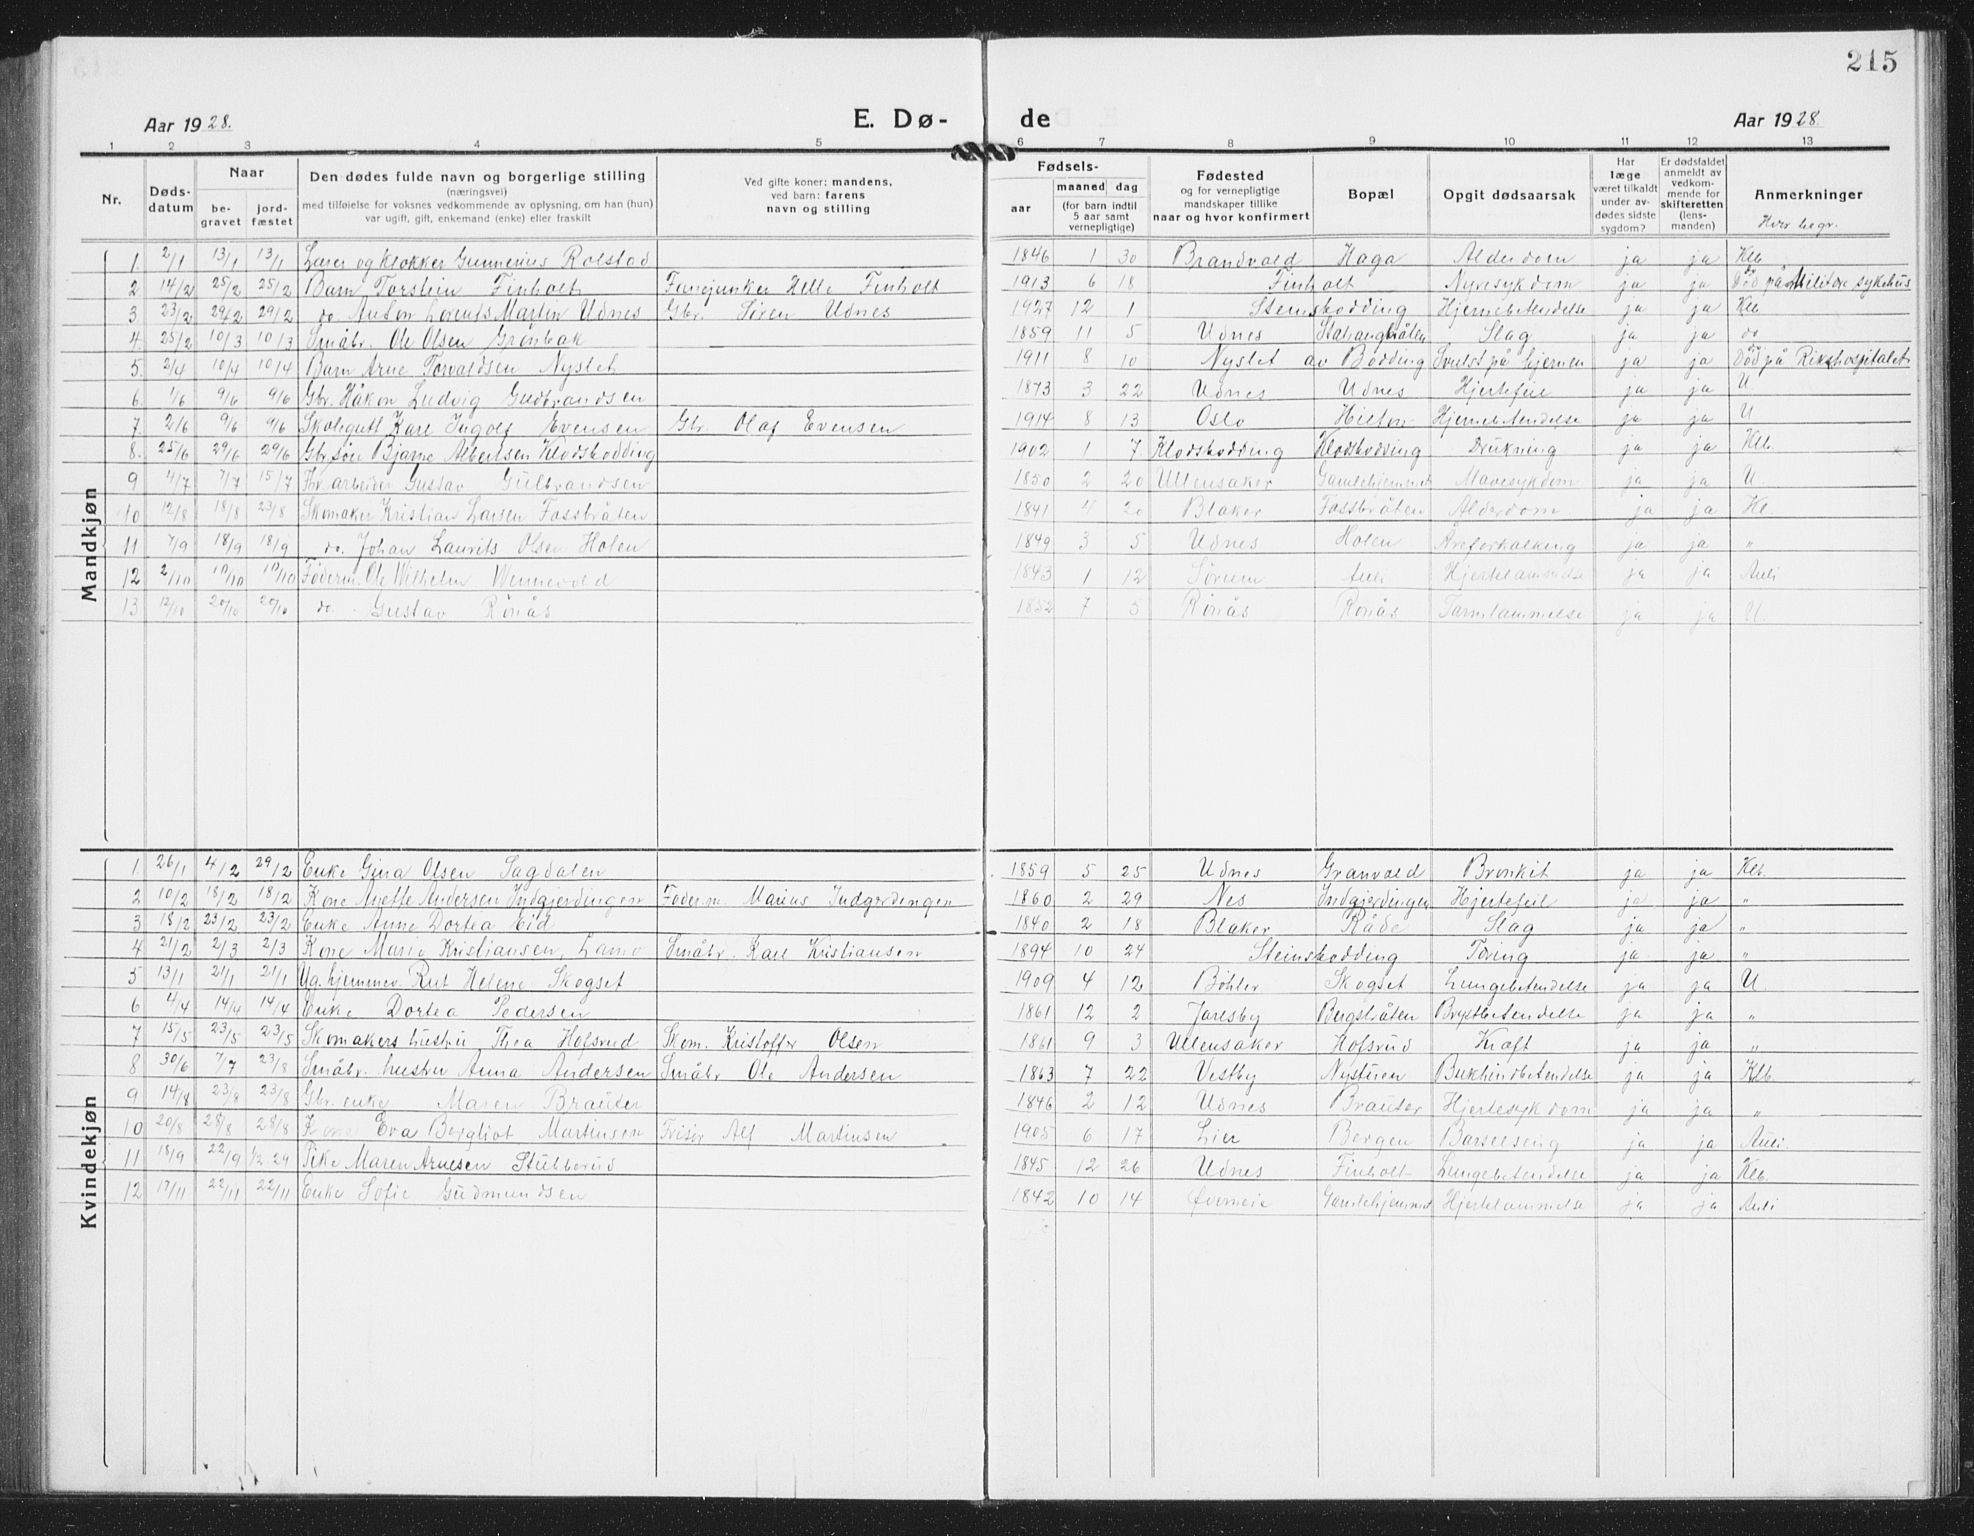 215
Aar 1928. E. Dø- de Aar 1928.
1 2 3 4 5 6 7 8 9 10 11 12 13
Nr. Døds-datum Naar be-gravet jord-fæstet Den dødes fulde navn og borgerlige stilling (næringsvei) med tilføielse for voksnes vedkommende av oplysning, om han (hun) var ugift, gift, enkemand (enke) eller fraskilt Ved gifte koner: mandens, ved barn: farens navn og stilling Fødsels- aar maaned dag (for barn indtil 5 aar samt vernepligtige) Fødested og for vernepligtige mandskaper tillike naar og hvor konfirmert Bopæl Opgit dødsaarsak Har læge været tilkaldt under av-dødes sidste sygdom? Er dødsfaldet anmeldt av vedkom-mende for skifteretten (lens-manden) Anmerkninger Hvor begr.
Mandkjøn
1. 2/1 13/1 13/1 Lærer og klokker Gunnerius Rolstad 1846 1 30 Brandvold Haga Alderdom ja ja Klb
2 14/2 25/2 25/2 Barn Torstein Finholt Fanejunker Helle Finholt 1913 6 18 Finholt Nyresykdom ja ja Död på Militære sykehus
3 23/2 29/2 29/2 do. Anton Lorents Martin Udnes Gbr. Sören Udnes 1927 12 1 Steinskodding Hjernebetendelse ja ja Klb
4. 25/2 10/3 10/3 Småbr. Ole Olsen Grönbak 1859 11 5 Udnes Slag ja ja do
5. 2/4 10/4 10/4 Barn Arne Torvaldsen Nyslet 1911 8 10 Nyslet av Bödding Svulst på hjernen ja ja Död på Rikshospitalet
6. 1/6 9/6 9/6 Gbr. Håkon Ludvig Gudbrandsen 1873 3 22 Udnes Udnes Hjertefeil ja ja U
7. 2/6 9/6 9/6 Skolegutt Karl Ingolf Evensen Gbr. Olaf Evensen 1914 8 13 Oslo Hilton Hjernebetendelse ja ja U
8. 25/6 29/6 29/6 Gbr.sön Bjarne Albertsen Klodskodding 1902 1 7 Klodskodding Klodskodding Drukning ja ja Klb.
9 4/7 7/7 15/7 Fhv. arbeider Gustav Gulbrandsen 1850 2 20 Ullensaker Gamlehjemmet Mavesykdom ja ja U
10 12/8 18/8 23/8 Skomaker Kristian Larsen Fossbråten 1841 4 20 Blaker Fossbråten Alderdom ja ja Kl.
11 7/9 18/9 18/9 do. Johan Laurits Olsen Holen 1849 3 5 Udnes Holen Åreforkalkning ja ja "
12 2/10 10/10 10/10 Föderm. Ole Wilhelm Wennevold 1843 1 12 Sörum Auli Hjertelammelse ja ja Auli
13 12/10 20/10 20/10 do. Gustav Rönås 1852 7 5 Rönås Rönås Tarmlammelse ja ja U.
Kvindekjøn
1 26/1 4/2 29/2 Enke Gina Olsen Sagdalen 1859 5 25 Udnes Granvold Bronkit ja ja Klb.
2 10/2 18/2 18/2 Kone Anette Andersen Indgjerdingen Föderm. Marius Indgerdengen 1860 2 29 Nes Indgjerdingen Hjertefeil ja ja "
3 18/2 23/2 23/2 Enke Anne Dortea Eid 1840 2 18 Blaker Råde Slag ja ja "
4 21/2 2/3 2/3 Kone Marie Kristiansen, Lamo Småbr. Karl Kristiansen 1894 10 24 Steinskodding Töring ja ja "
5 13/1 21/1 21/1 Ug. hjemmev. Rut Helene Skogset 1909 4 12 Böhler Skogset Lungebetendelse ja ja U.
6 4/4 14/4 14/4 Enke Dortea Pedersen 1861 12 2 Jaresby Bergstråten Brystbetendelse ja ja "
7 15/5 23/5 23/5 Skomakers hustru Thea Hofsrud Skom. Kristoffer Olsen 1861 9 3 Ullensaker Hofsrud Kræft ja ja "
8 30/6 7/7 23/8 Småbr. hustru Anna Andersen Småbr Ole Andersen 1863 7 22 Vestby Nystuen Bukhindbetendelse ja ja Klb.
9 14/8 23/8 23/8 Gbr. enke Maren Brauter 1846 2 12 Udnes Brauter Hjertesykdom ja ja "
10 20/8 28/8 28/8 Kone Eva Bergliot Martinsen Frisör Alf Martinsen 1905 6 17 Lier Bergen Barselseng ja ja Auli
11 18/9 22/9 1/2-29 Pike Maren Arnesen Stubberud 1845 12 26 Udnes Finholt Lungebetendelse ja ja Klb.
12 17/11 22/11 22/11 Enke Sofie Gudmundsen 1842 10 14 Gamlehjemmet Hjertelammelse ja ja Auli